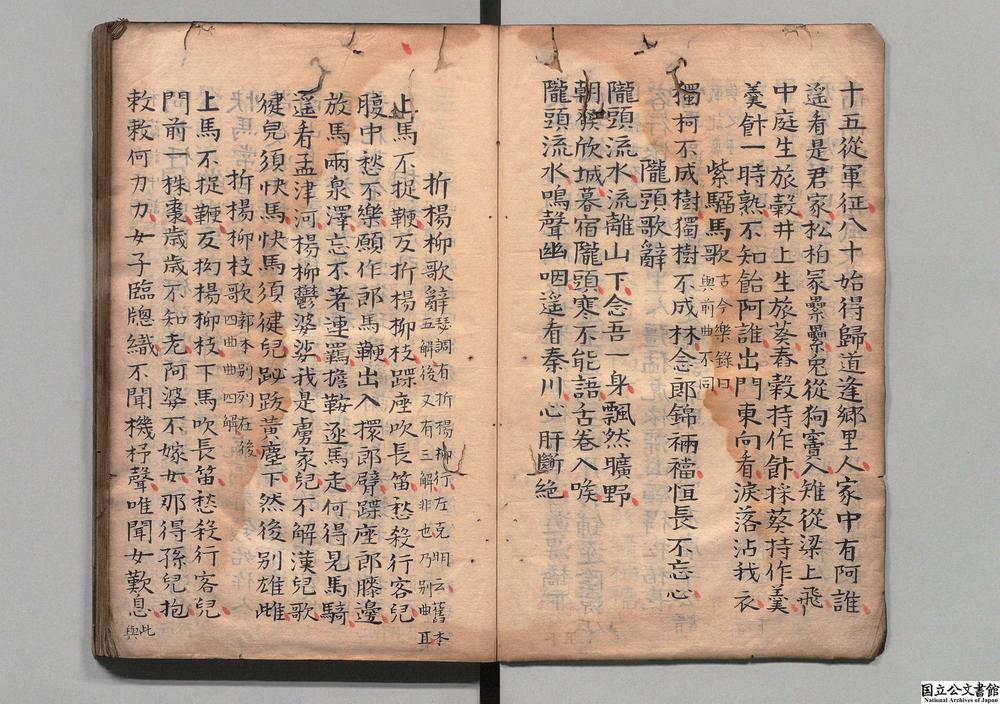 十五從軍征八十始得歸道逢鄉里人家中有阿誰
遥看是君家松柏冢纍纍兔從狗竇入雉從梁上飛
中庭生旅穀井上生旅葵舂穀持作飰採葵持作羹
羹飰一時熟不知飴阿誰出門東向看淚落沾我衣
紫騮馬歌古今樂錄曰與前曲不同
獨柯不成樹獨樹不成林念郎錦裲襠恒長不忘心
隴頭歌辭
隴頭流水流離山下念吾一身飄然曠野
朝發欣城暮宿隴頭寒不能語舌卷入喉
隴頭流水鳴聲幽咽遥看秦川心肝斷絶
折楊柳歌辭瑟調有折楊柳行左克明云舊本五解後又有三解非也乃别曲耳
上馬不捉鞭反折楊柳枝蹀座吹長笛愁殺行客兒
腹中愁不樂願作郎馬鞭出入擐郎臂蹀座郎膝邊
放馬兩泉澤忘不著連羈擔鞍逐馬走何得見馬騎
遥看孟津河楊柳鬱婆娑我是虜家兒不解漢兒歌
健兒須快馬快馬須健兒䟤跋黃塵下然後别雄雌
折楊柳枝歌郭本别列在後四曲四解
上馬不捉鞭反拗楊柳枝下馬吹長笛愁殺行客兒
門前一株棗歲歲不知老阿婆不嫁女那得孫兒抱
敕敕何力力女子臨牕織不聞機杼聲唯聞女歎息此與
国立公文書館
National Archives of Japan